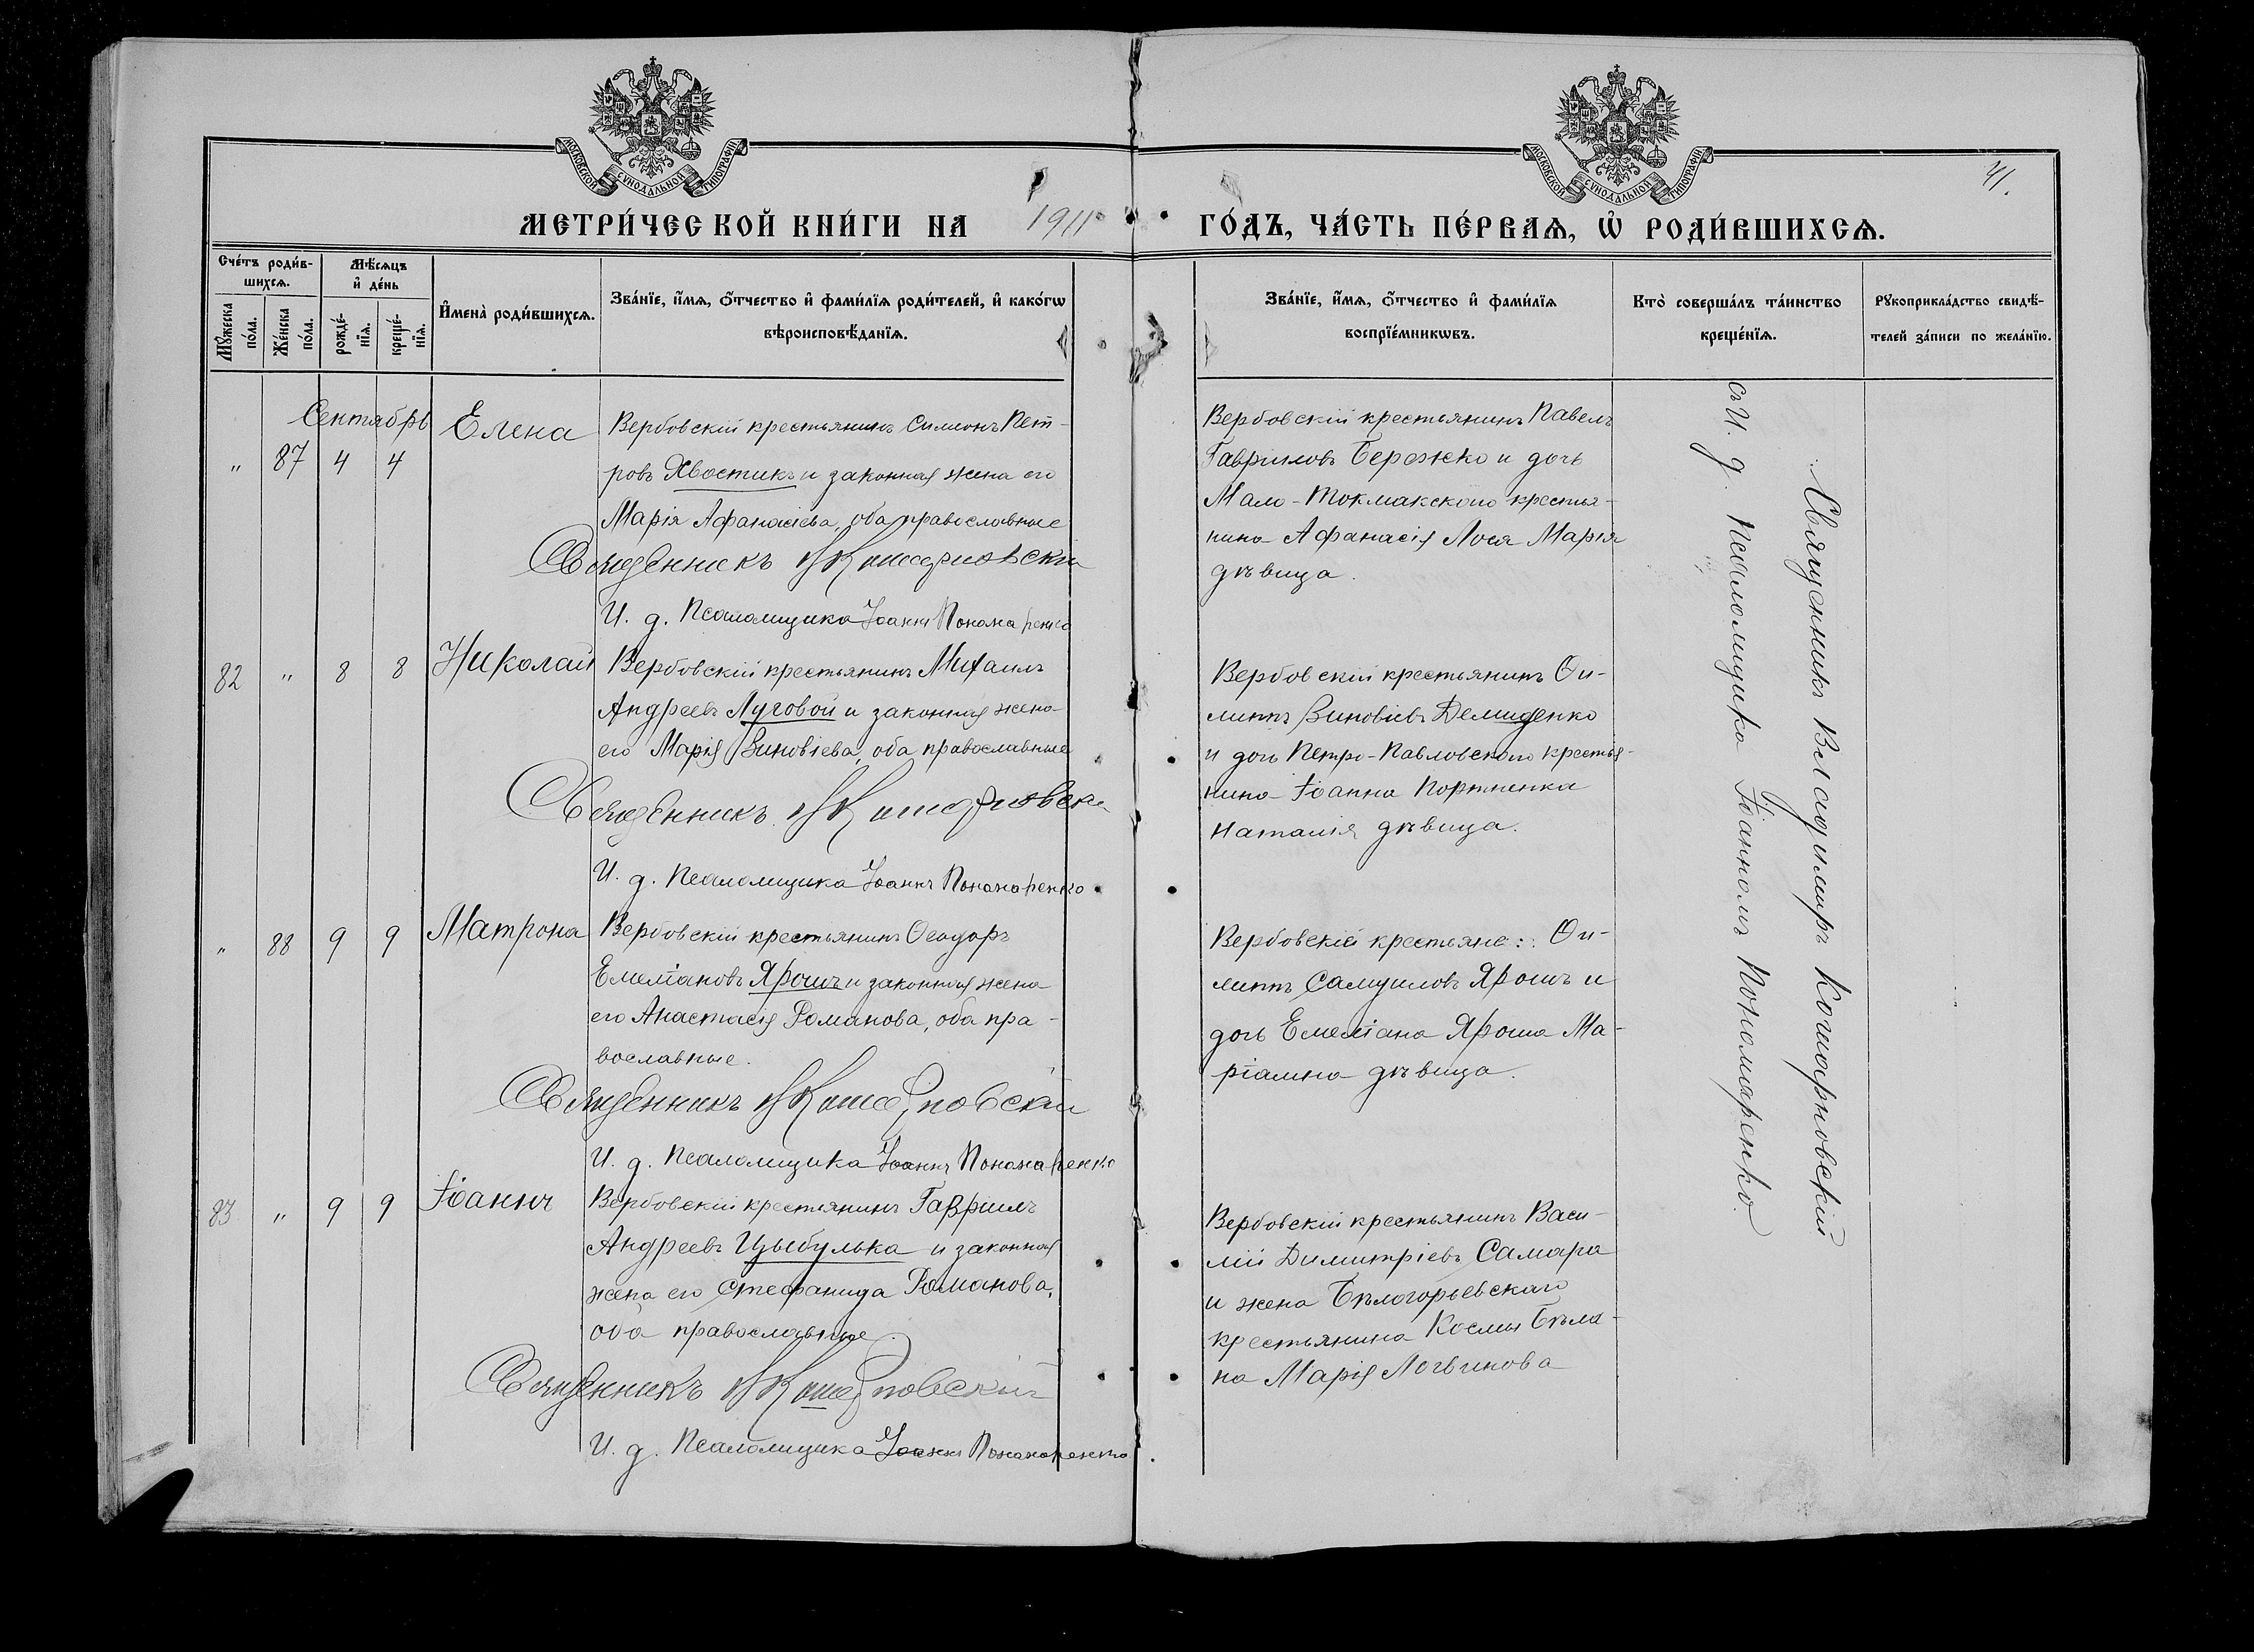 МОСКОВСКОЙ СѴНОДАЛЬНОЙ ТИПОГРАФІИ
МОСКОВСКОЙ СѴНОДАЛЬНОЙ ТИПОГРАФІИ
41.
МЕТРИ́ЧЕСКОЙ КНИ́ГИ НА 1911 ГО́ДЪ, ЧА́СТЬ ПЕ́РВАѦ, Ѡ҆ РОДИ́ВШИХСѦ.
Сче́тъ роди́в-
шихсѧ.
Мꙋ́жеска по́ла.
Же́нска по́ла.
Мѣ́сѧцъ
и҆ де́нь
рожде́-
нїѧ.
креще́-
нїѧ.
И҆мена̀ роди́вшихсѧ.
Зва́нїе, и҆́мѧ, ѻ҆́тчество и҆ фами́лїѧ роди́телей, и҆ како́гѡ
вѣроисповѣ́данїѧ.
Зва́нїе, и҆́мѧ, ѻ҆́тчество и҆ фами́лїѧ
воспрїе́мникѡвъ.
Кто̀ соверша́лъ та́инство
креще́нїѧ.
Рꙋкоприкла́дство свидѣ́-
телей за́писи по жела́нїю.
Сентябрь
" 87 4 4
Елена
Вербовскій крестьянинъ Симеонъ Пет-
ровъ Хвостикъ и законная жена его
Марія Афанасіева, оба православные
Священникъ В Кошарновскій
И. д. Псаломщика Іоаннъ Пономаренко
Вербовскій крестьянинъ Павелъ
Гавриловъ Бережко и дочь
Мало-Токмакскаго крестья-
нина Афанасія Лося Марія
дѣвица.
82 " 8 8
Николай
Вербовскій крестьянинъ Михаилъ
Андреевъ Луговой и законная жена
его Марія Зиновіева, оба православные
Священникъ В Кошарновскій
И. д. Псаломщика Іоаннъ Пономаренко
Вербовскій крестьянинъ Фи-
липпъ Зиновіевъ Демиденко
и дочь Петро-Павловскаго крестья-
нина Іоанна Портненка
Наталія дѣвица.
" 88 9 9
Матрона
Вербовскій крестьянинъ Ѳеодоръ
Емеліановъ Ярошъ и законная жена
его Анастасія Романова, оба пра-
вославные.
Священникъ В Кошарновскій
И. д. Псаломщика Іоаннъ Пономаренко
Вербовскіе крестьяне: Фи-
липпъ Самуиловъ Ярошъ и
дочь Емеліана Яроша Ма-
ріамна дѣвица.
83 " 9 9
Іоаннъ
Вербовскій крестьянинъ Гавріилъ
Андреевъ Цыбулька и законная
жена его Стефанида Романова,
оба православные.
Священникъ В Кошарновскій
И. д. Псаломщика Іоаннъ Пономаренко
Вербовскій крестьянинъ Васи-
лій Димитріевъ Самара
и жена Бѣлогорьевскаго
крестьянина Космы Бѣла-
на Марія Логвинова
Священникъ Владимиръ Кошарновскій
съ И. д. Псаломщика Іоанномъ Пономаренко.